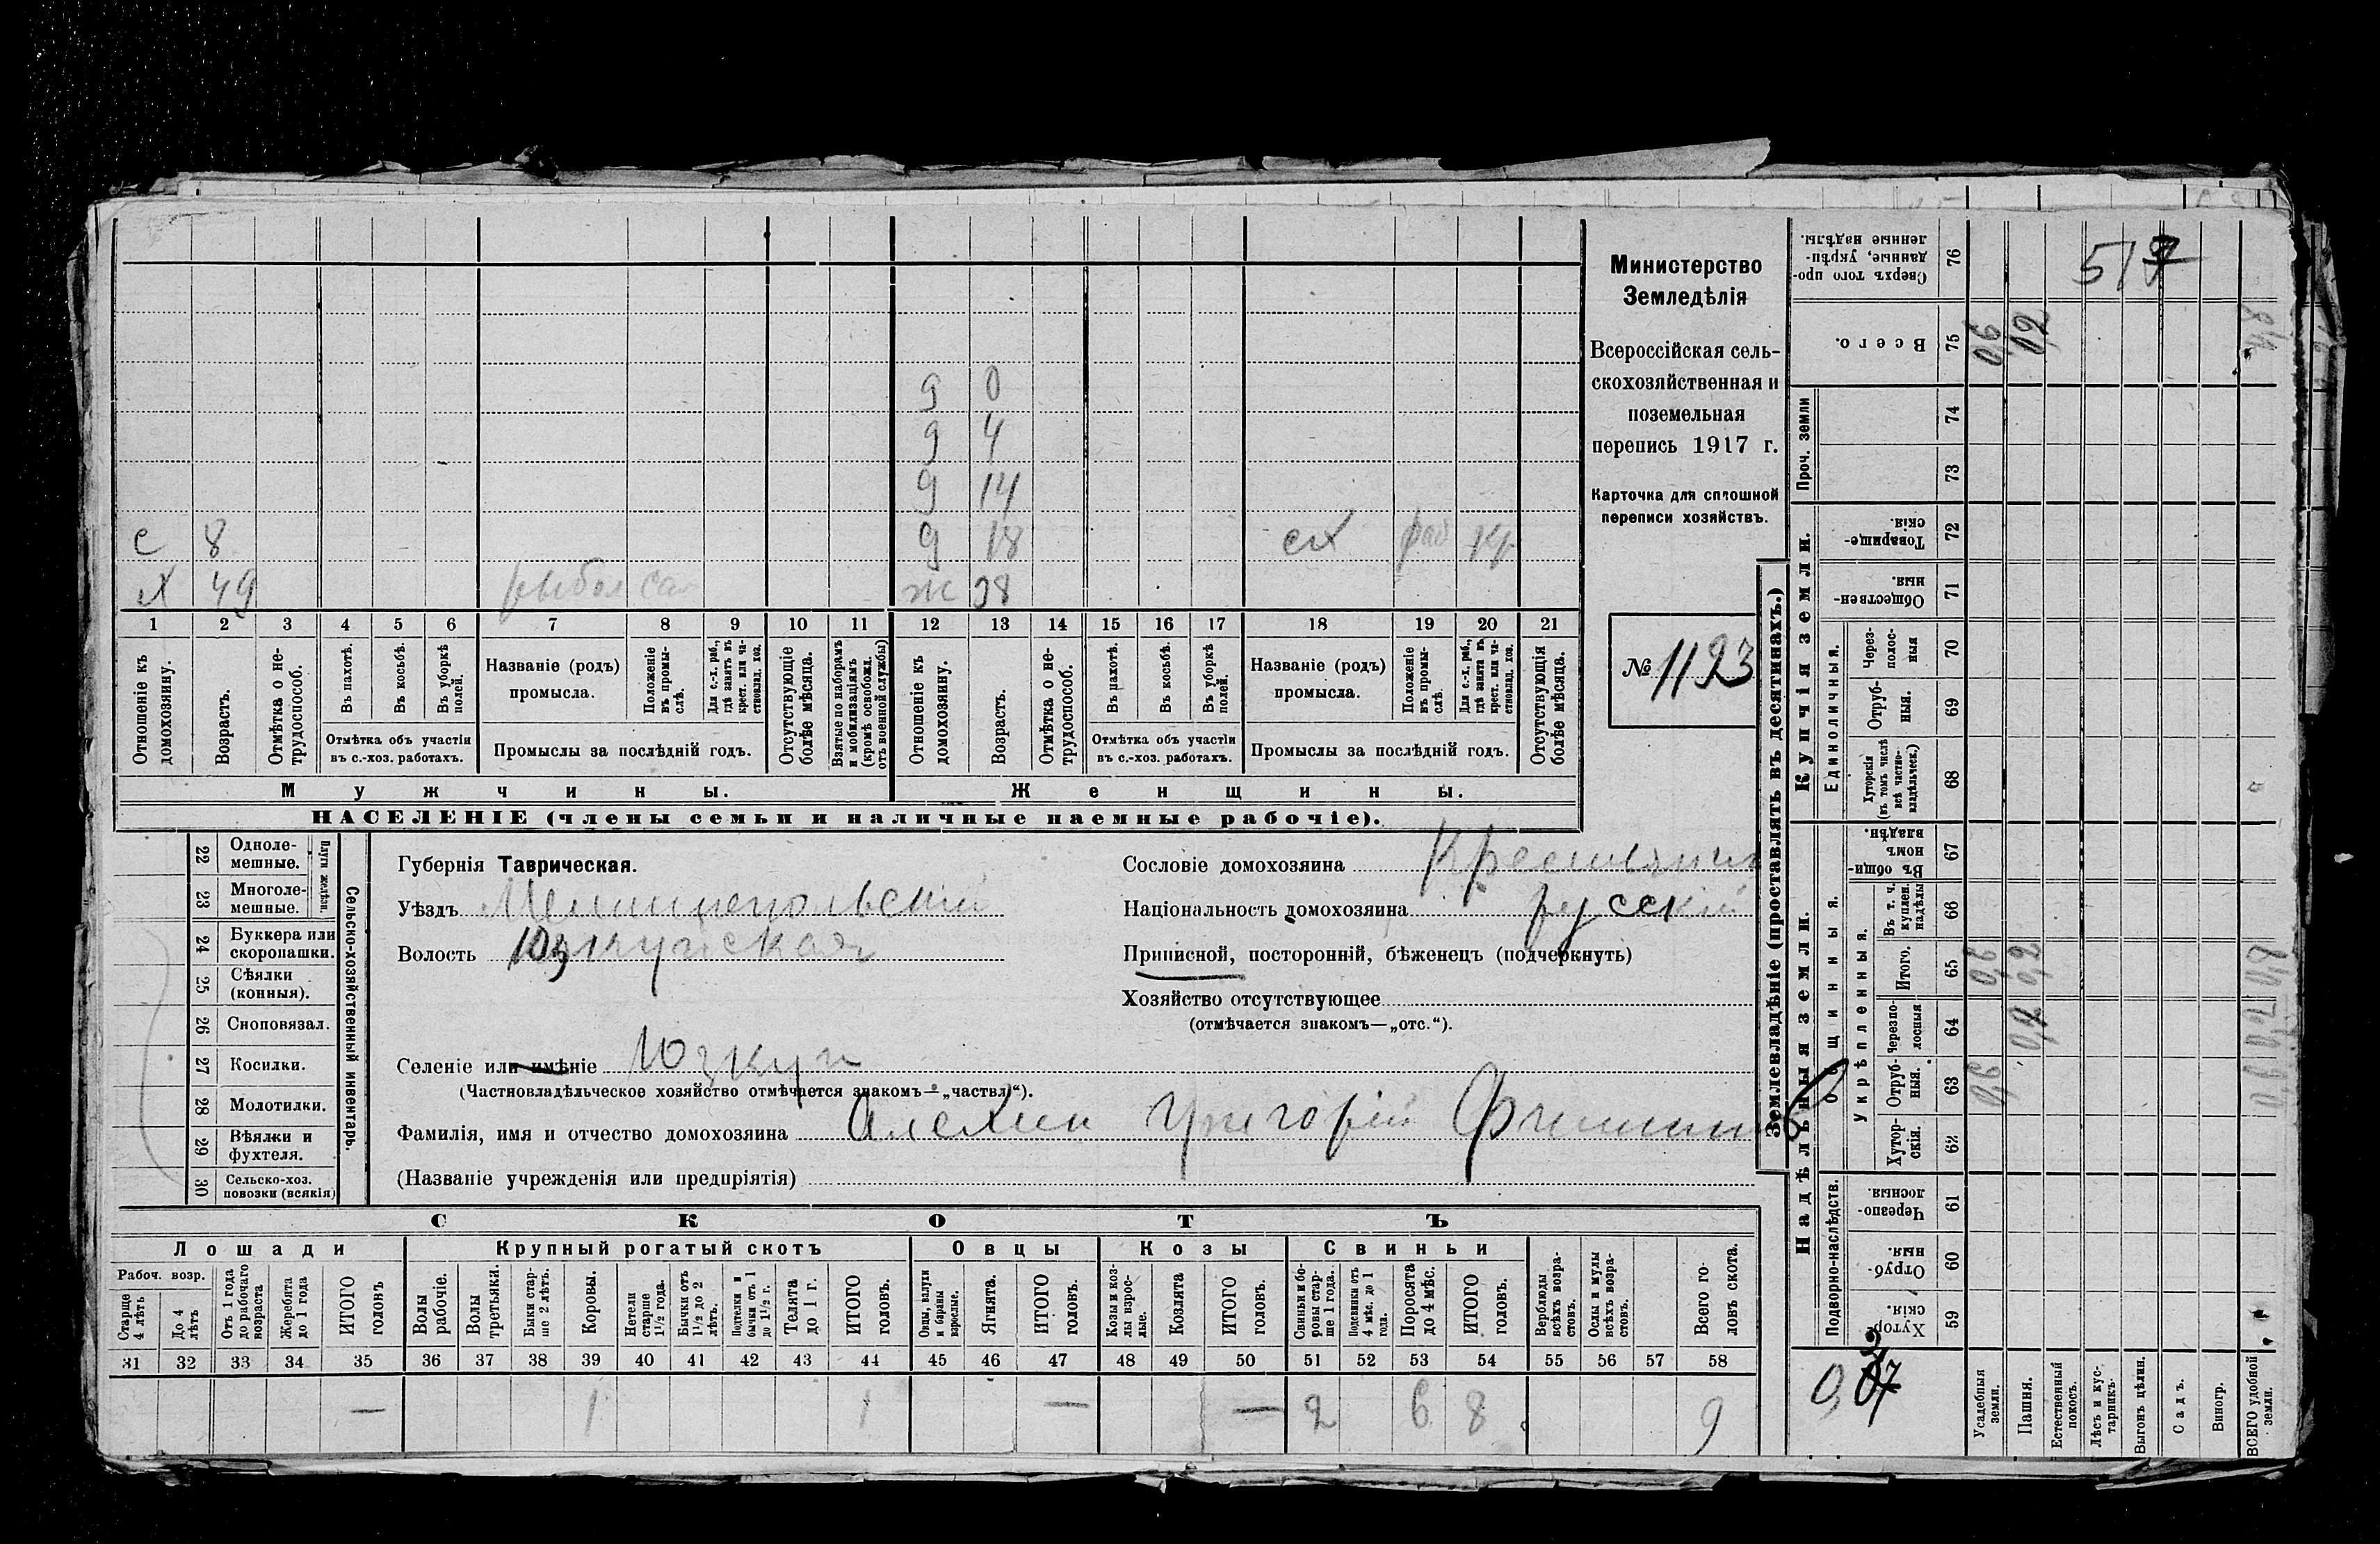 Министерство
Земледѣлія
Всероссійская сель-
скохозяйственная и
поземельная
перепись 1917 г.
Карточка для сплошной
переписи хозяйствъ.
№ 1123
д 0
д 4
д 14
с 8 д 18 сх раб кр
х 49 рыбол ж 38
1 2 3 4 5 6 7 8 9 10 11 12 13 14 15 16 17 18 19 20 21
Отношеніе къ домохозяину.
Возрастъ.
Отмѣтка о не-трудоспособ.
Въ пахотѣ.
Въ косьбѣ.
Въ уборкѣ полей.
Отмѣтка объ участіи
въ с.-хоз. работахъ.
Названіе (родъ)
промысла.
Положеніе въ промы-слѣ.
Для с.-х. раб., гдѣ занятъ въ крест. или ча-стновлад. хоз.
Промыслы за послѣдній годъ.
Отсутствующіе болѣе мѣсяца.
Взятые по наборамъ и мобилизаціямъ (кромѣ освобожд. отъ военной службы)
Отношеніе къ домохозяину.
Возрастъ.
Отмѣтка о не-трудоспособ.
Въ пахотѣ.
Въ косьбѣ.
Въ уборкѣ полей.
Отмѣтка объ участіи
въ с.-хоз. работахъ.
Названіе (родъ)
промысла.
Положеніе въ промы-слѣ.
Для с.-х. раб., гдѣ занята въ крест. или ча-стновлад. хоз.
Промыслы за послѣдній годъ.
Отсутствующія болѣе мѣсяца.
Мужчины. Женщины.
НАСЕЛЕНІЕ (члены семьи и наличные наемные рабочіе).
Сельско-хозяйственный инвентарь.
Плуги желѣзн.
22 Одноле-мешные.
23 Многоле-мешные.
24 Буккера или скоропашки.
25 Сѣялки (конныя).
26 Сноповязал.
27 Косилки.
28 Молотилки.
29 Вѣялки и фухтеля.
30 Сельско-хоз. повозки (всякія)
Губернія Таврическая.
Уѣздъ Мелитопольскій
Волость Юзкуйская
Селеніе или имѣніе Юзкуи
(Частновладѣльческое хозяйство отмѣчается знакомъ—„частвл“).
Фамилія, имя и отчество домохозяина Алехин Григорій
(Названіе учрежденія или предпріятія)
Сословіе домохозяина Крестьянин
Національность домохозяина русскій
Приписной, посторонній, бѣженецъ (подчеркнуть)
Хозяйство отсутствующее
(отмѣчается знакомъ—„отс.“).
СКОТЪ
Лошади Крупный рогатый скотъ Овцы Козы Свиньи
Рабоч. возр.
Старше 4 лѣтъ
До 4 лѣтъ
Отъ 1 года до рабочаго возраста
Жеребята до 1 года
ИТОГО головъ
Волы рабочіе.
Волы третьяки.
Быки стар-ше 2 лѣтъ.
Коровы.
Нетели старше 1½ года.
Бычки отъ 1½ до 2 лѣтъ.
Подтелки и бычки отъ 1 до 1½ г.
Телята до 1 г.
ИТОГО головъ.
Овцы, валухи и бараны взрослые.
Ягнята.
ИТОГО головъ.
Козы и коз-лы взрос-лые.
Козлята
ИТОГО головъ.
Свиньи и бо-ровы стар-ше 1 года.
Подсвинки отъ 4 мѣс. до 1 года.
Поросята до 4 мѣс.
ИТОГО головъ.
Верблюды всѣхъ возра-стовъ.
Ослы и мулы всѣхъ возра-стовъ.
Всего го-ловъ скота.
31 32 33 34 35 36 37 38 39 40 41 42 43 44 45 46 47 48 49 50 51 52 53 54 55 56 57 58
— 1 1 — — 2 6 8 9
Землевладѣніе (проставлять въ десятинахъ.)
Купчія земли.
Надѣльныя земли.
Проч. земли
Единоличныя.
Общинныя.
Укрѣпленныя.
Подворно-наслѣдств.
76 Сверхъ того про-данные, укрѣп-ленные надѣлы.
517
75 Всего. 0,6 0,2
74
73
72 Товарище-скія.
71 Обществен-ныя.
70 Через-полос-ныя
69 Отруб-ныя.
68 Хуторскія (въ томъ числѣ всѣ частно-владѣльческ.)
67 Въ общи-номъ владѣн.
66 Въ т. ч. куплен. надѣлы
65 Итого. 0,6 0,2
64 Черезпо-лосныя
63 Отруб-ныя.
62 Хутор-скія.
61 Черезпо-лосныя.
60 Отруб-ныя.
59 Хутор-скія.
Усадебныя земли.
Пашня.
Естественный покосъ.
Лѣсъ и кус-тарникъ
Выгонъ цѣлин.
Садъ.
Виногр.
ВСЕГО удобной земли.